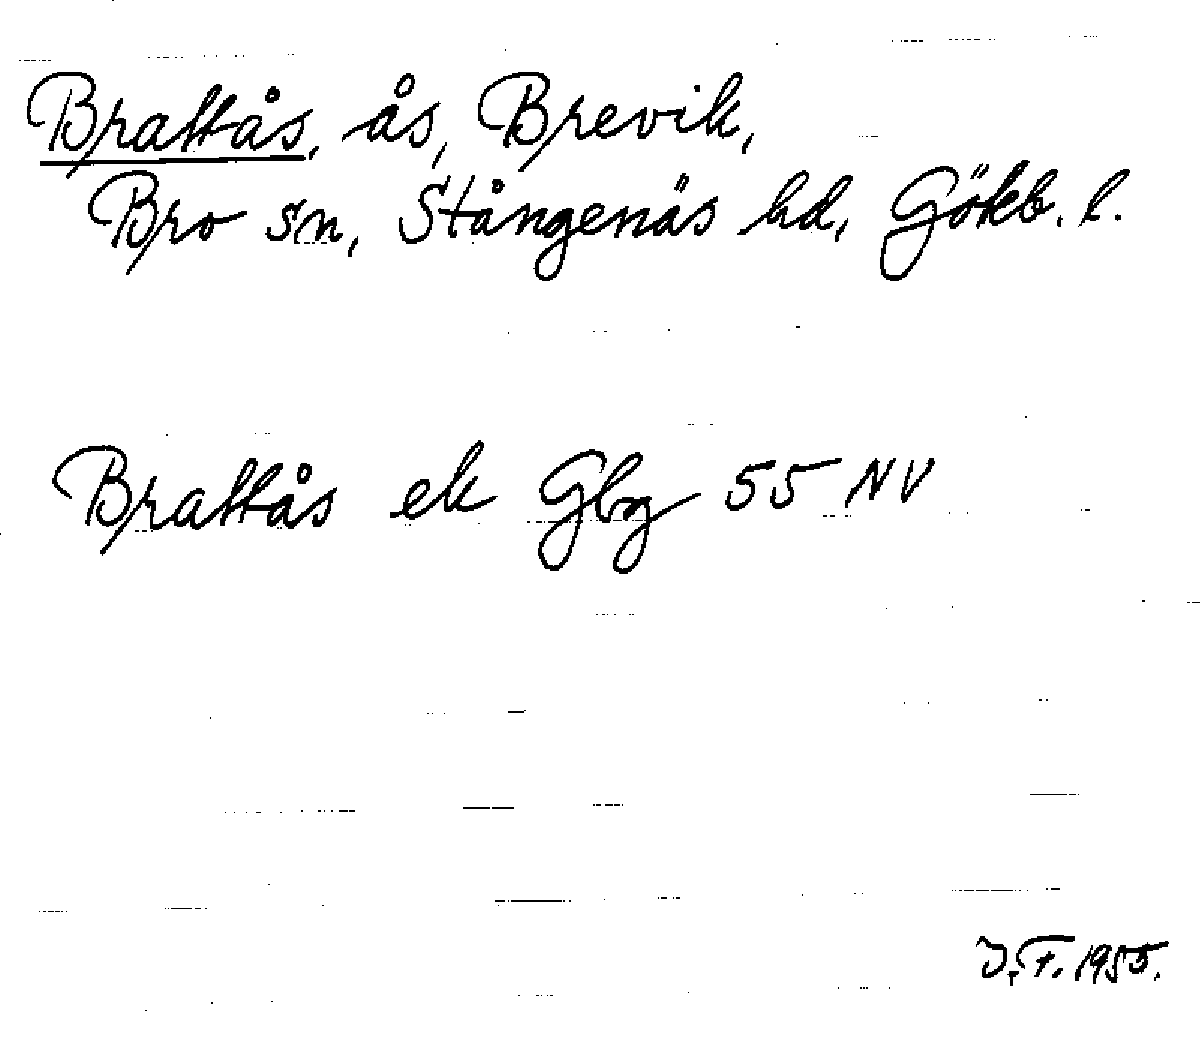 Brattås, ås, Brevik,
Bro sn, Stångenäs hd, Gökb. l.
Brattås ek Gbg 55 NV
J.F. 1955.